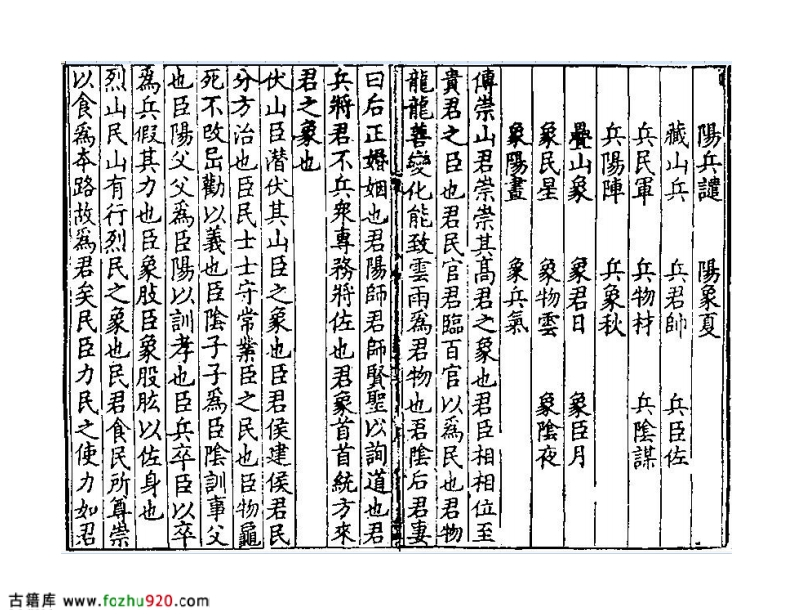 陽兵譴　陽象夏
藏山兵　兵君帥　兵臣佐
兵民軍　兵物材　兵陰謀
兵陽陣　兵象秋
疊山象　象君日　象臣月
象民星　象物雲　象陰夜
象陽晝　象兵氣
傳崇山君崇崇其高君之象也君臣相相位至
貴君之臣也君民官君臨百官以爲民也君物
龍龍善變化能致雲雨爲君物也君陰后君妻
曰后正婚姻也君陽師君師賢聖以詢道也君
兵將君不兵衆專務將佐也君象首首統方來
君之象也
伏山臣潛伏其山臣之象也臣君侯建侯君民
分方治也臣民士士守常業臣之民也臣物龜
死不改勸以義也臣陰子子爲臣陰訓事父
也臣陽父父爲臣陽以訓孝也臣兵卒臣以卒
爲兵假其力也臣象肢臣象股肱以佐身也
烈山民山有行烈民之象也民君食民所尊崇
以食爲本路故爲君矣民臣力民之使力如君
古籍库 www.fozhu920.com